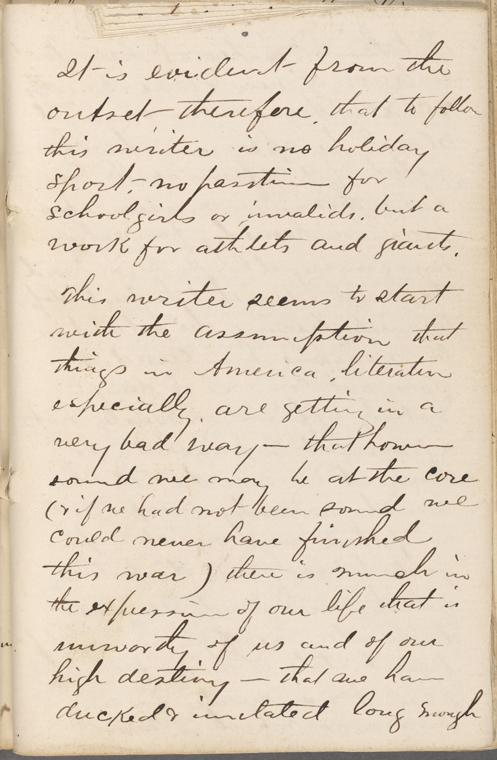 It is evident from the
outset therefore, that to follow
this writer is no holiday
sport, no pastime for
schoolgirls or invalids, but a
work for athlets and giants.
This writer seems to start
with the assumption that
things in America, literature
especially, are getting in a
very bad way — that however
sound we may be at the core
(& if we had not been sound we
could never have finished
this war) there is much in
the expression of our life that is
unworthy of us and of our
high destiny — that we have
& imitated long enough